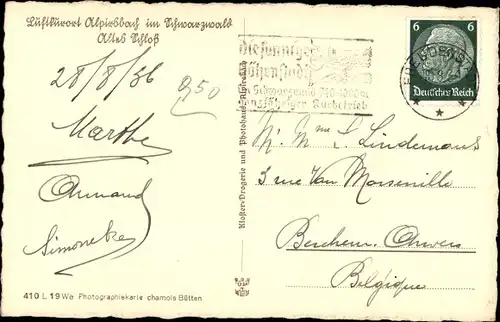 Luftkurort Alpirsbach im Schwarzwald
Altes Schloß
28/8/36
950
Marthe
Armand
Simone
410 L 19 We Photographiekarte chamois Bütten
Kloster-Drogerie und Photohaus
die sonnige
Schwarzwald 740-1000m
ganzjähriger Kurbetrieb
6 6
Deutsches Reich
FREUDENSTADT
Mme L. Lindemans
3 rue Van
Berchem. Anvers
Belgique